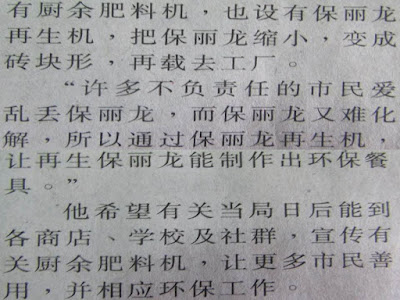 有厨余肥料机，也设有保丽龙
再生机，把保丽龙缩小，变成
砖块形，再载去工厂。
“许多不负责任的市民爱
乱丢保丽龙，而保丽龙又难化
解，所以通过保丽龙再生机，
让再生保丽龙能制作出环保餐
具。”
他希望有关当局日后能到
各商店、学校及社群，宣传有
关厨余肥料机，让更多市民善
用，并相应环保工作。